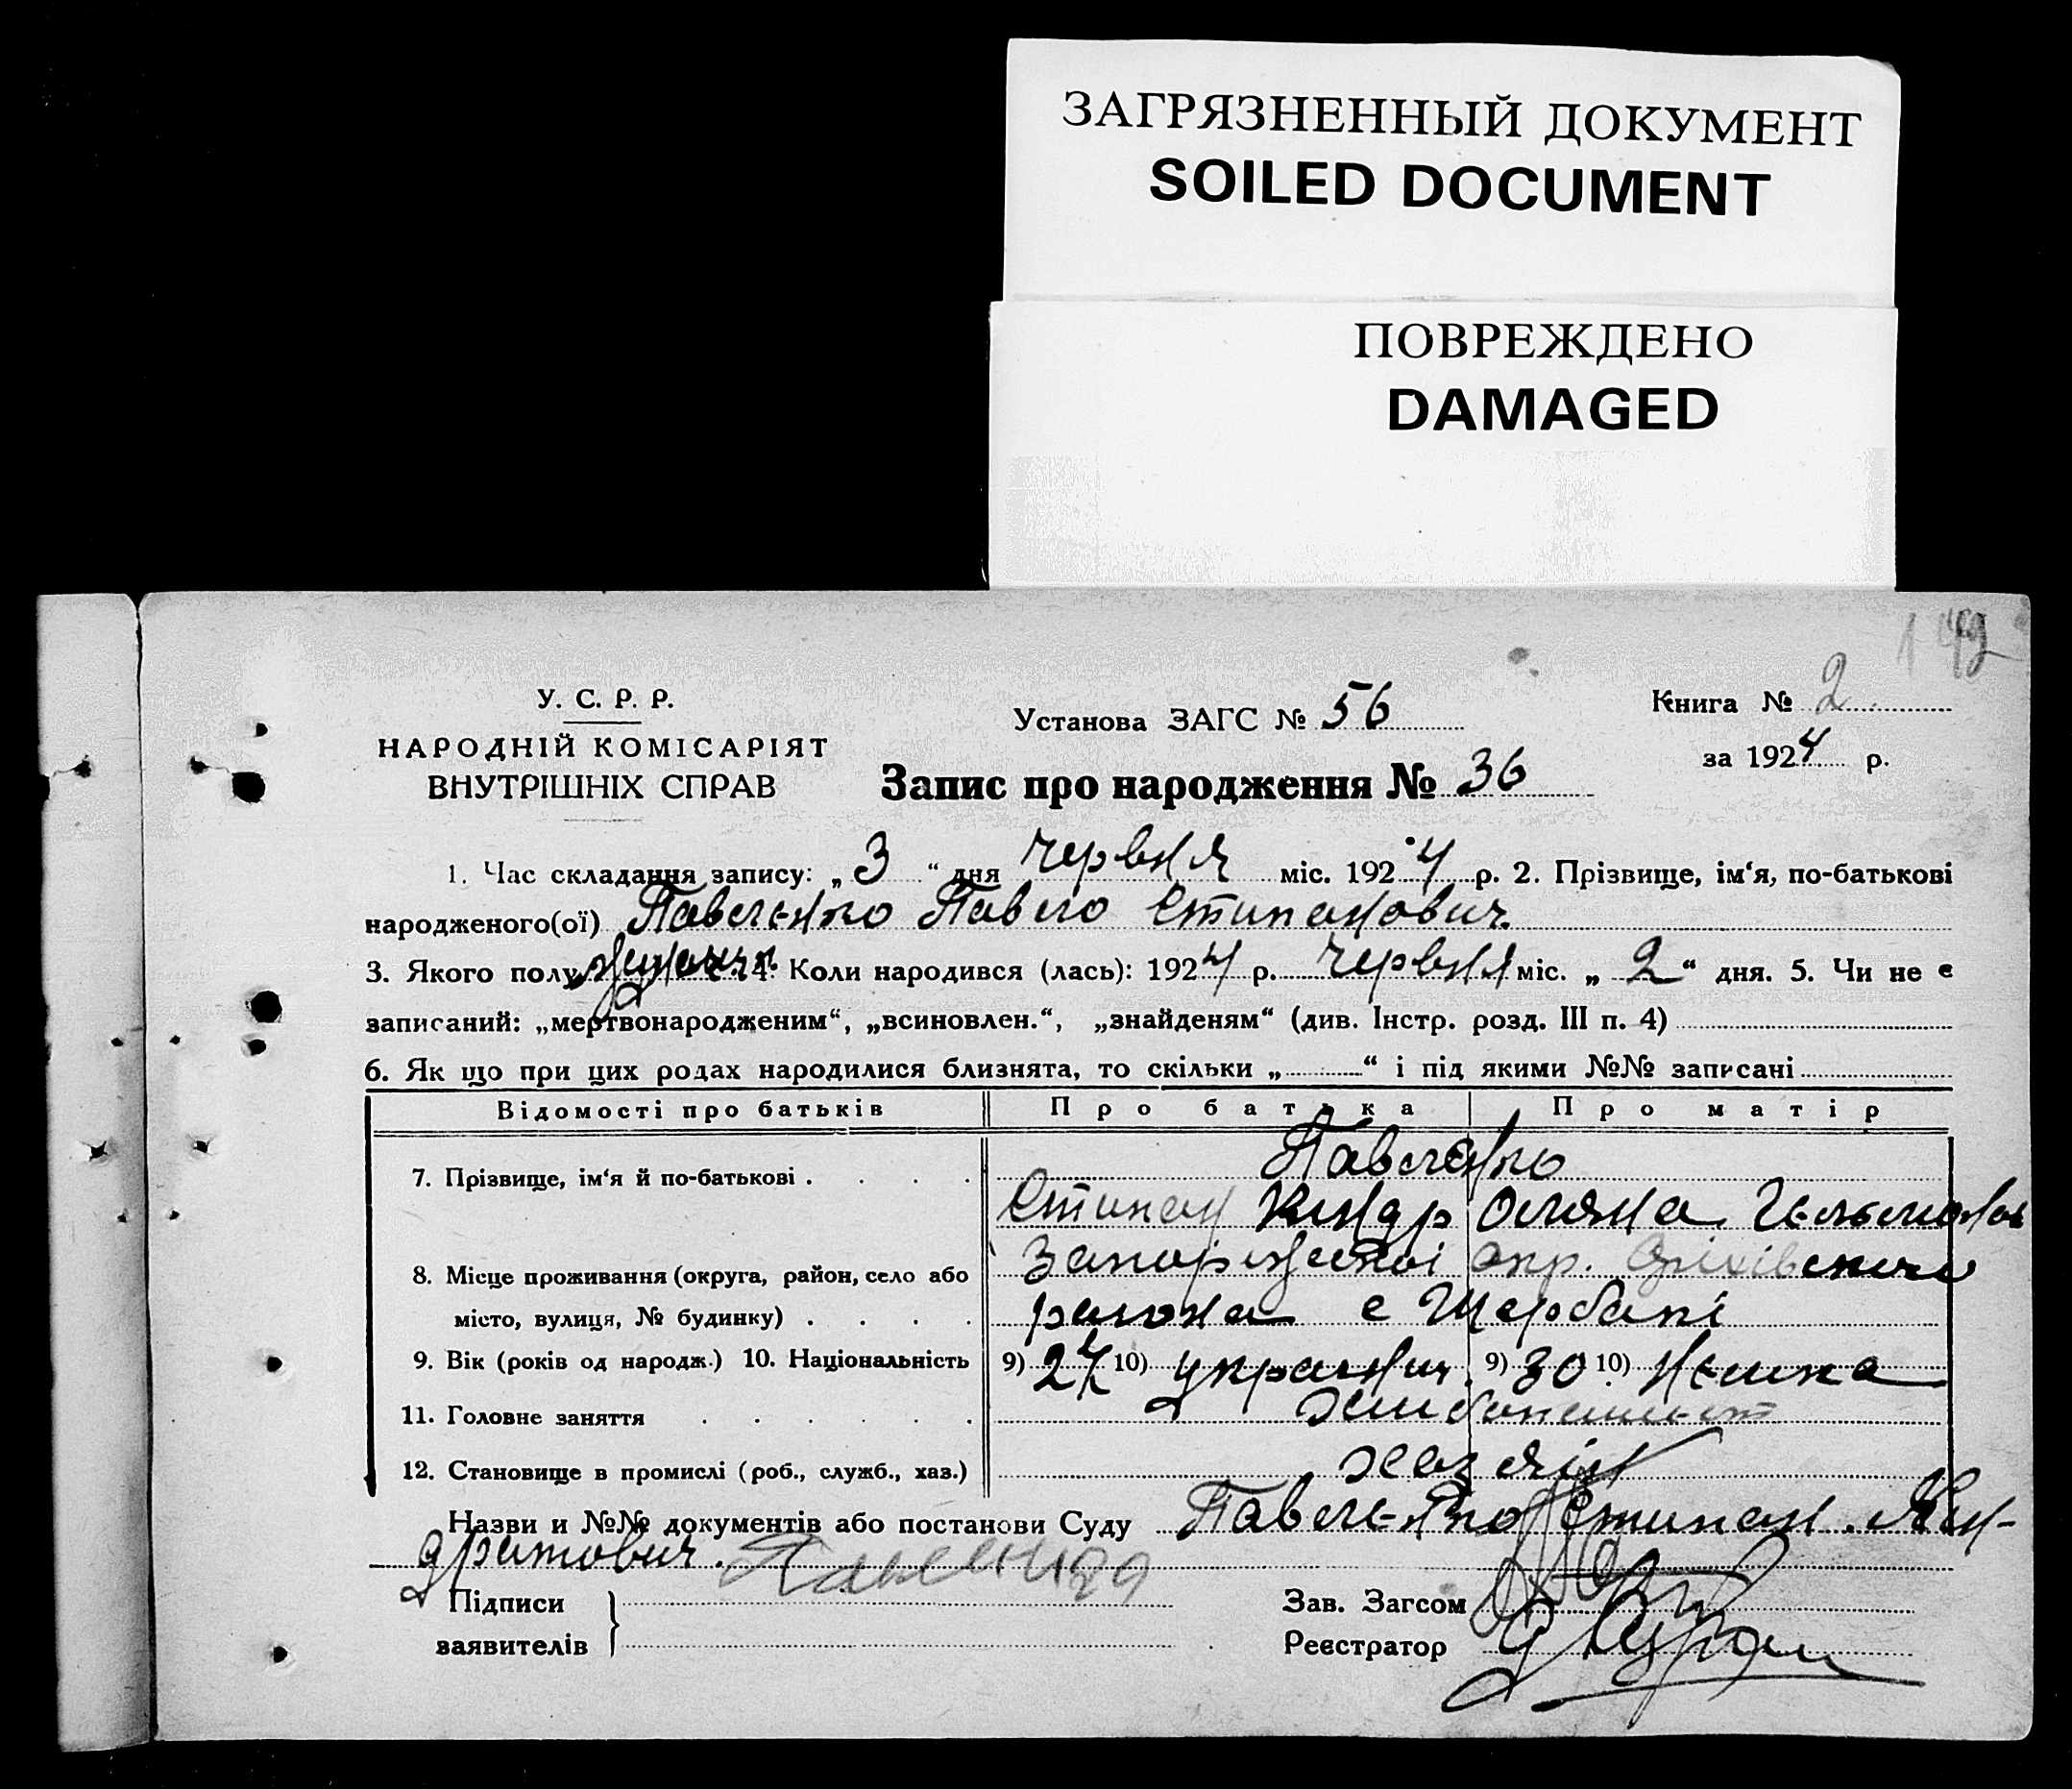 ЗАГРЯЗНЕННЫЙ ДОКУМЕНТ
SOILED DOCUMENT
ПОВРЕЖДЕНО
DAMAGED
У. С. Р. Р.
НАРОДНІЙ КОМІСАРІЯТ
ВНУТРІШНІХ СПРАВ
Установа ЗАГС № 56
Книга № 2
за 1924 р.
Запис про народження № 36
1. Час складання запису: „ 3 “ дня червня міс. 1924 р. 2. Прізвище, ім‘я, по-батькові
народженого(ої) Павленко Павло Степанович
3. Якого полу 4. Коли народився (лась): 1924 р. червня міс. „ 2 “ дня. 5. Чи не є
записаний: „мертвонародженим“, „всиновлен.“, „знайденям“ (див. Інстр. розд. III п. 4)
6. Як що при цих родах народилися близнята, то скільки „ “ і під якими №№ записані
Відомості про батьків Про батька Про матір
7. Прізвище, ім‘я й по-батькові Павленко
Степан Киндр Оляна
8. Місце проживання (округа, район, село або Запоріжської окр. Оріхівського
місто, вулиця, № будинку) района с Щербакі
9. Вік (років од народж.) 10. Національність 9) 27 10) украінц. 9) 30 10) Немка
11. Головне заняття
12. Становище в промислі (роб., служб., хаз.) хазяін
Назви и №№ документів або постанови Суду Павленко Степан Кин-
дратович.
Підписи
заявителів
Зав. Загсом
Реєстратор